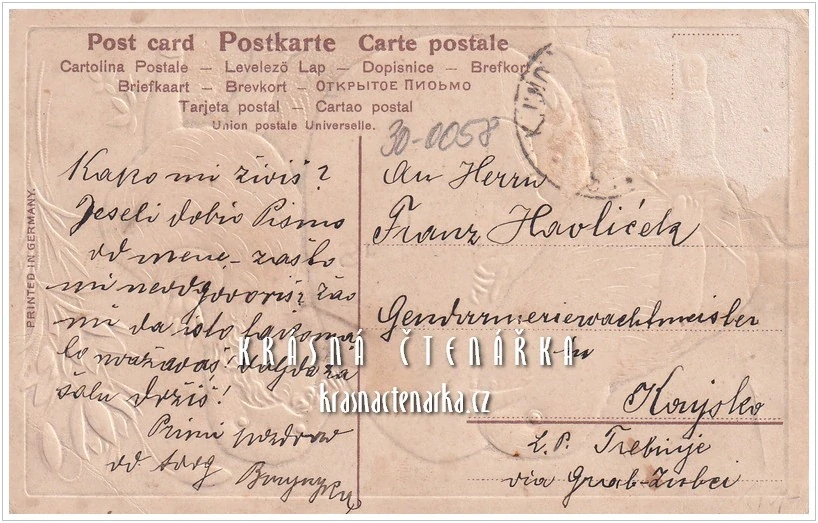 Post card Postkarte Carte postale
Cartolina Postale — Levelező Lap — Dopisnice — Brefkort
Briefkaart — Brevkort — ОТКРЫТОЕ ПИСЬМО
Tarjeta postal — Cartao postal
Union postale Universelle.
30-0058
PRINTED IN GERMANY.
Kako mi živiš?
Jeseli dobio Pismo
od mene, zašto
mi neodgovoriš? žao
mi da isto
držiš!
Primi pozdrav
od tvog
An Herrn
Franz Havlíček
Gendarmeriewachtmeister
in
L.P. Trebinje
via Grab-Zubci
KRÁSNÁ ČTENÁŘKA
krasnactenarka.cz